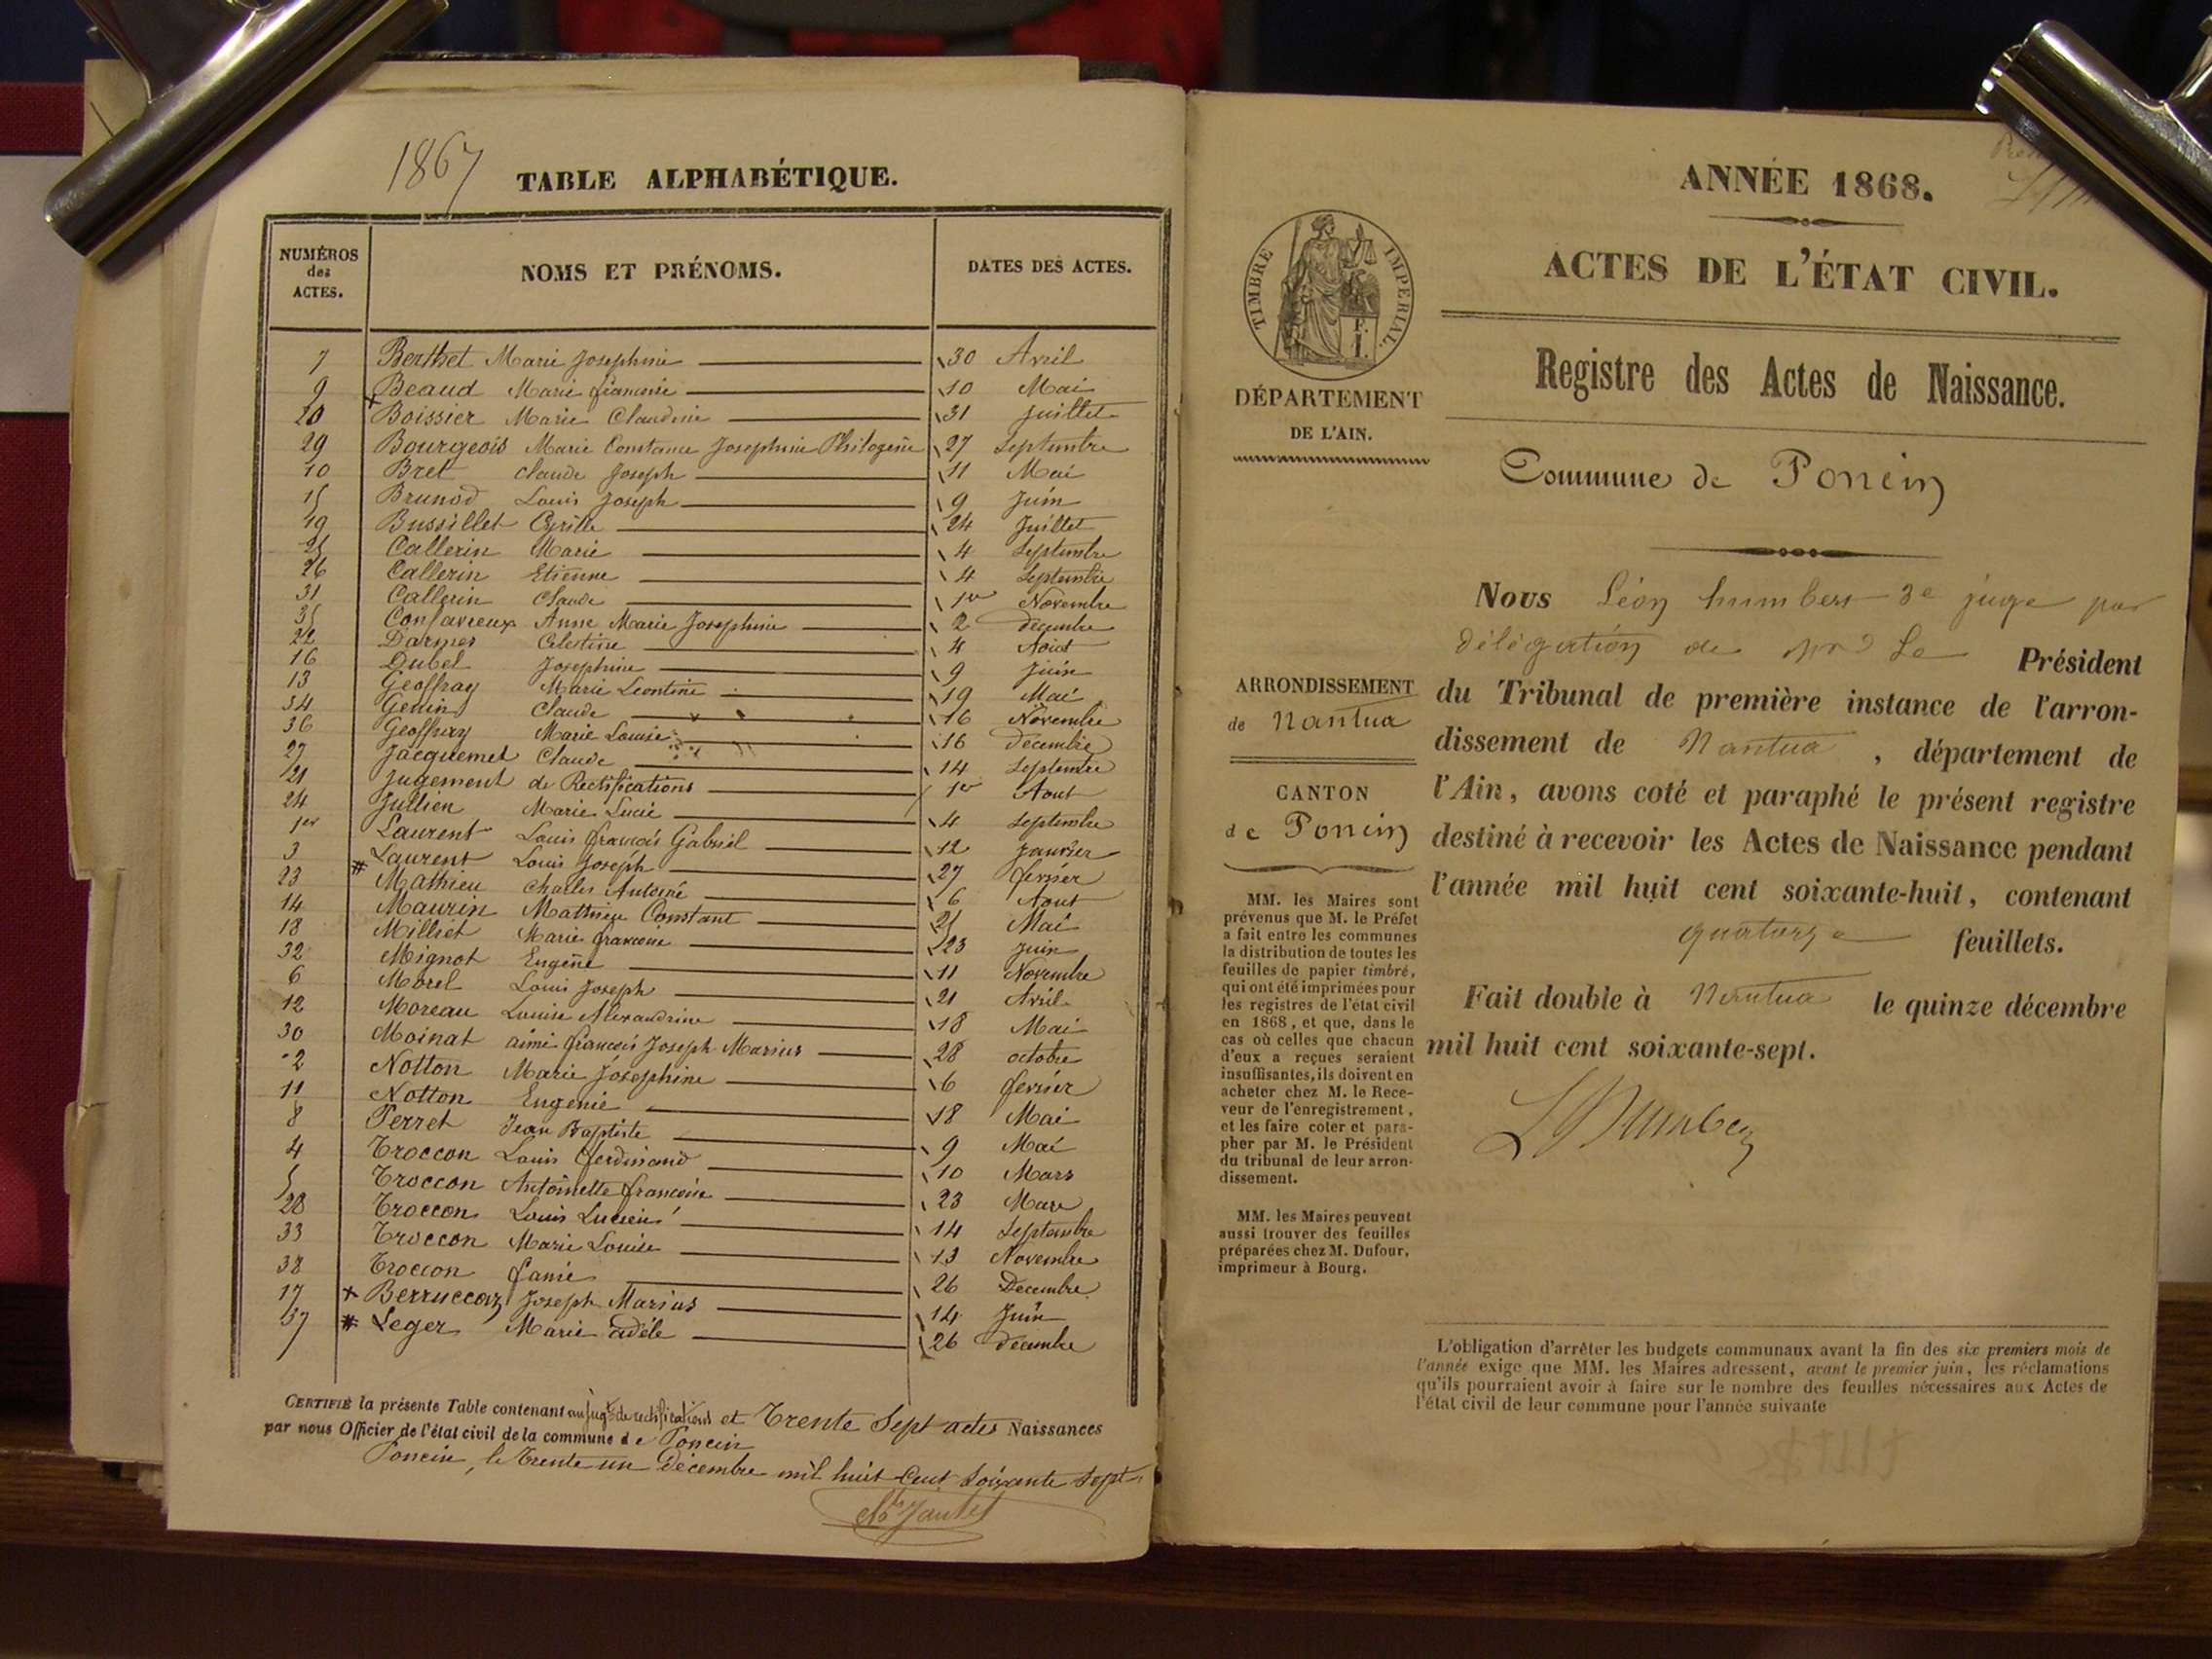 1867
TABLE ALPHABÉTIQUE.
NUMÉROS des ACTES.
NOMS ET PRÉNOMS.
DATES DES ACTES.
7 Berthet Marie Josephine 30 Avril
9 Beaud Marie francoise 10 Mai
20 Boissier Marie Claudine 31 Juillet
29 Bourgeois Marie Constance Josephine Philogène 27 Septembre
10 Bret Claude Joseph 11 Mai
15 Brunod Louis Joseph 9 Juin
19 Bussillet Cyrille 24 Juillet
25 Callerin Marie 4 Septembre
26 Callerin Etienne 4 Septembre
31 Callerin Claude 1er Novembre
35 Confavreux Anne Marie Josephine 2 décembre
22 Darmes Celestine 4 Aout
16 Dubel Josephine 9 Juin
13 Geoffray Marie Leontine 19 Mai
34 Genin Claude 16 Novembre
36 Geoffray Marie Louise 16 decembre
27 Jacquemet Claude 14 Septembre
21 Jugement de Rectifications 1er Aout
24 Jullien Marie Lucie 4 Septembre
1er Laurent Louis francois Gabriel 12 Janvier
3 Laurent Louis Joseph 27 fevrier
23 # Mathieu Charles Antoine 6 Aout
14 Maurin Mathieu Constant 21 Mai
18 Milliet Marie francoise 23 Juin
32 Mignot Eugène 11 Novembre
6 Morel Louis Joseph 21 Avril
12 Moreau Louise Alexandrine 18 Mai
30 Moinat aimé francois Joseph Marius 28 octobre
2 Notton Marie Josephine 6 fevrier
11 Notton Eugenie 18 Mai
8 Perret Jean Baptiste 9 Mai
4 Troccon Louis ferdinand 10 Mars
5 Troccon Antoinette francoise 23 Mars
28 Troccon Louis Lucien 14 Septembre
33 Troccon Marie Louise 13 Novembre
38 Troccon fanie 26 Decembre
17 + Berruccaz Joseph Marius 14 Juin
37 # Leger Marie adèle 26 decembre
CERTIFIÉ la présente Table contenant un jugt de rectifications et Trente Sept actes Naissances
par nous Officier de l'état civil de la commune de Poncin
Poncin, le Trente un Décembre mil huit Cent Soixante Sept
ANNÉE 1868.
ACTES DE L'ÉTAT CIVIL.
TIMBRE IMPÉRIAL.
Registre des Actes de Naissance.
DÉPARTEMENT
DE L'AIN.
Commune de Poncin
ARRONDISSEMENT
de Nantua
CANTON
de Poncin
MM. les Maires sont
prévenus que M. le Préfet
a fait entre les communes
la distribution de toutes les
feuilles de papier timbré,
qui ont été imprimées pour
les registres de l'état civil
en 1868, et que, dans le
cas où celles que chacun
d'eux a reçues seraient
insuffisantes, ils doivent en
acheter chez M. le Rece-
veur de l'enregistrement,
et les faire coter et para-
pher par M. le Président
du tribunal de leur arron-
dissement.
MM. les Maires peuvent
aussi trouver des feuilles
préparées chez M. Dufour,
imprimeur à Bourg.
Nous Léon humbert 3e juge par
délégation de Mr Le Président
du Tribunal de première instance de l'arron-
dissement de Nantua, département de
l'Ain, avons coté et paraphé le présent registre
destiné à recevoir les Actes de Naissance pendant
l'année mil huit cent soixante-huit, contenant
quatorze feuillets.
Fait double à Nantua le quinze décembre
mil huit cent soixante-sept.
L Humbert
L'obligation d'arrêter les budgets communaux avant la fin des six premiers mois de
l'année exige que MM. les Maires adressent, avant le premier juin, les réclamations
qu'ils pourraient avoir à faire sur le nombre des feuilles nécessaires aux Actes de
l'état civil de leur commune pour l'année suivante